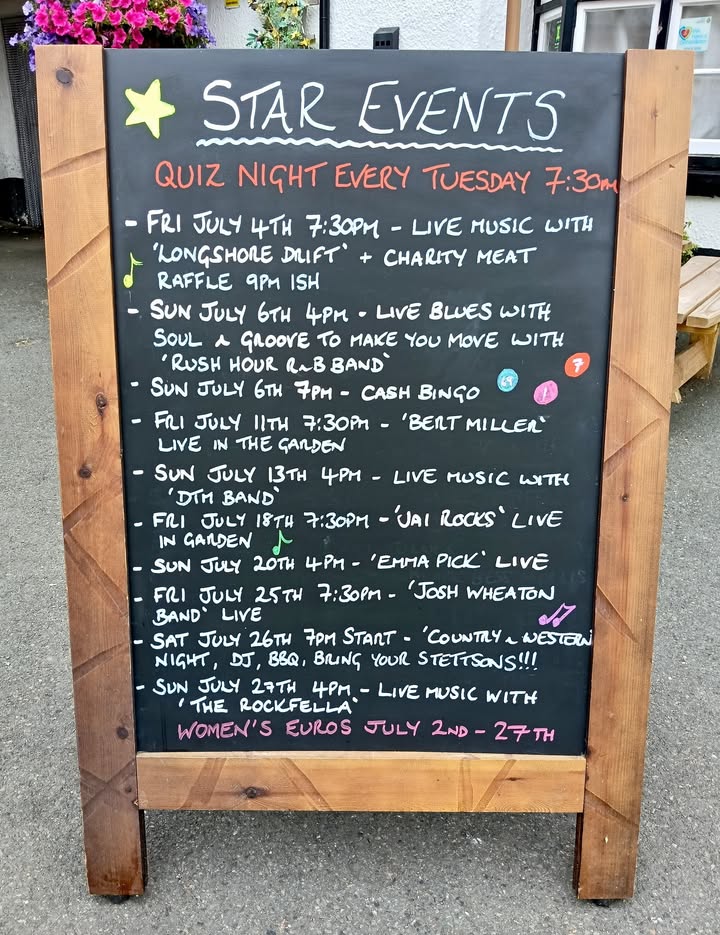 STAR EVENTS
QUIZ NIGHT EVERY TUESDAY 7:30PM
- FRI JULY 4TH 7:30PM - LIVE MUSIC WITH
'LONGSHORE DRIFT' + CHARITY MEAT
RAFFLE 9PM ISH
- SUN JULY 6TH 4PM - LIVE BLUES WITH
SOUL & GROOVE TO MAKE YOU MOVE WITH
'RUSH HOUR R&B BAND'
7
- SUN JULY 6TH 7PM - CASH BINGO
- FRI JULY 11TH 7:30PM - 'BERT MILLER'
LIVE IN THE GARDEN
- SUN JULY 13TH 4PM - LIVE MUSIC WITH
'DTM BAND'
- FRI JULY 18TH 7:30PM - 'JAI ROCKS' LIVE
IN GARDEN
- SUN JULY 20TH 4PM - 'EMMA PICK' LIVE
- FRI JULY 25TH 7:30PM - 'JOSH WHEATON
BAND' LIVE
- SAT JULY 26TH 7PM START - 'COUNTRY & WESTERN
NIGHT, DJ, BBQ, BRING YOUR STETTSONS!!!
- SUN JULY 27TH 4PM - LIVE MUSIC WITH
'THE ROCKFELLA'
WOMEN'S EUROS JULY 2ND - 27TH